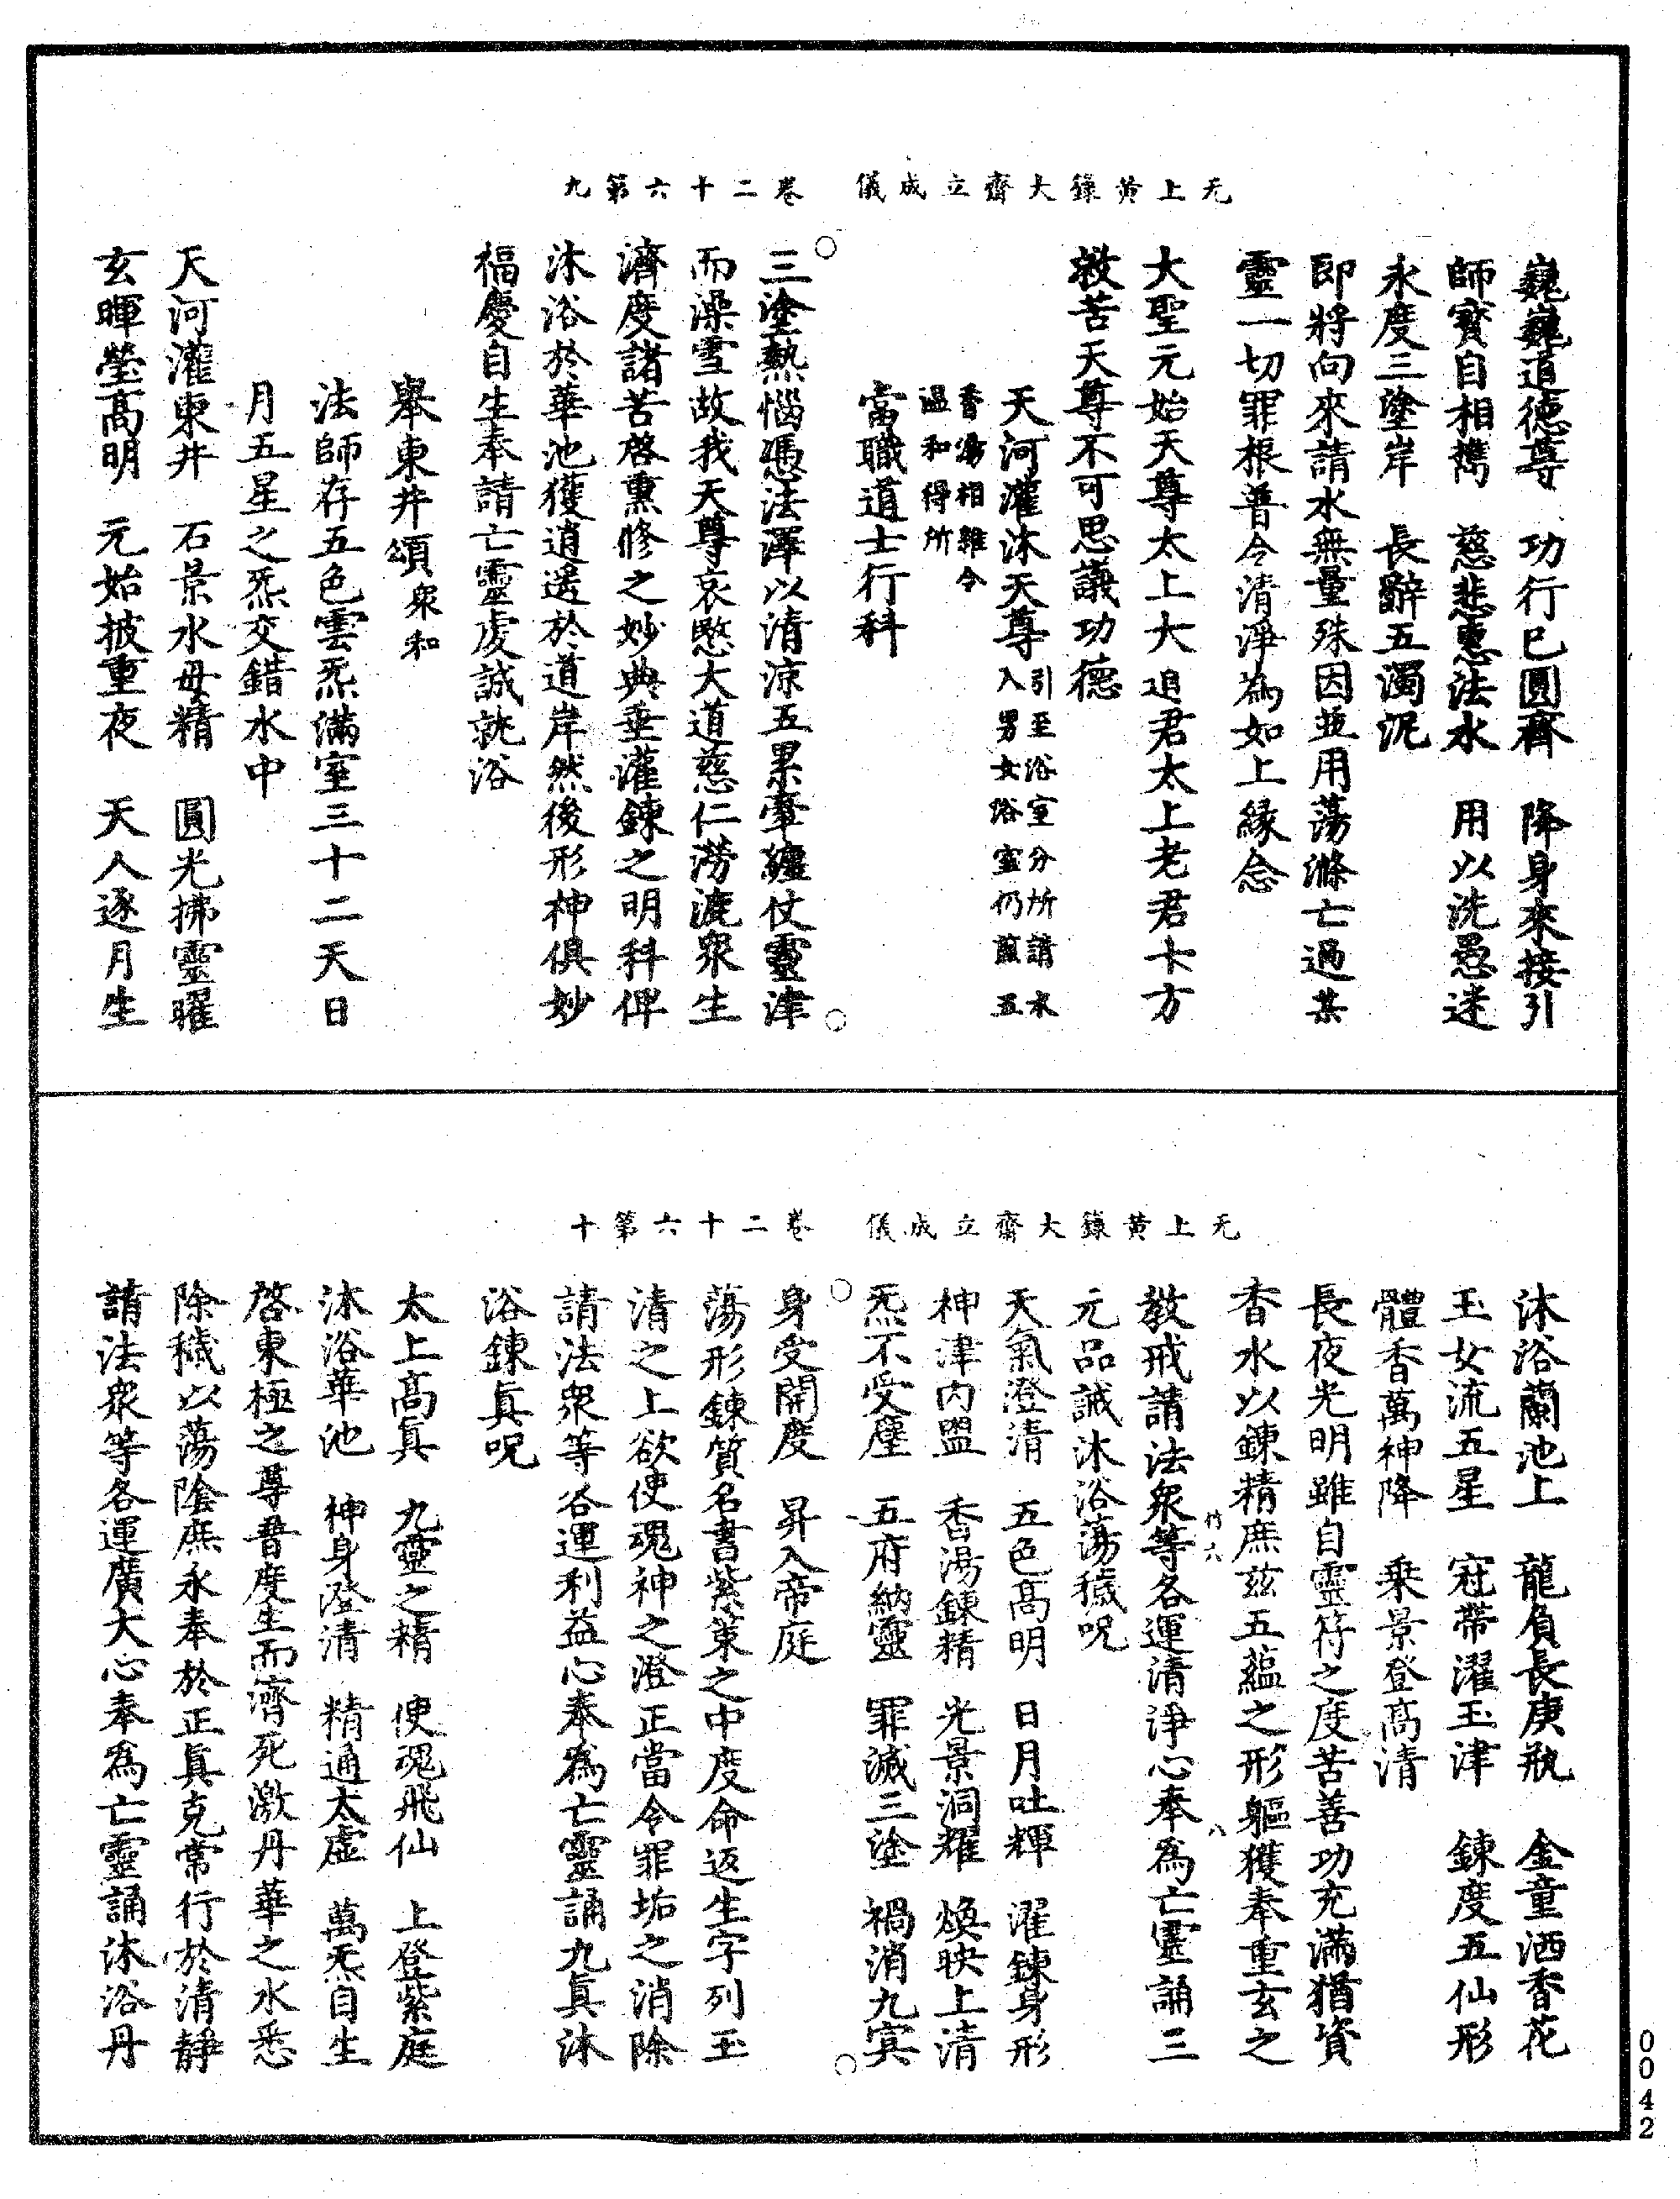 无上黃籙大齋立成儀　卷二十六第九
巍巍道德尊　功行已圓齋　降身來接引
師寶自相攜　慈悲惠法水　用以洗愚迷
永度三塗岸　長辭五濁泥
即將向來請水無量殊因並用蕩滌亡過某
靈一切罪根普令清淨為如上緣念
大聖元始天尊太上大道君太上老君十方
救苦天尊不可思議功德
天河灌沐天尊引至浴室分所請水入男女浴室仍煎五
香湯相雜令溫和得所
當職道士行科
三塗熱惱憑法澤以清涼五累牽纏仗靈津
而澡雪故我天尊哀愍大道慈仁澇漉眾生
濟度諸苦啓熏修之妙典垂灌鍊之明科俾
沐浴於華池獲逍遙於道岸然後形神俱妙
福慶自生奉請亡靈虔誠就浴
舉東井頌眾和
法師存五色雲炁滿室三十二天日
月五星之炁交錯水中
天河灌東井　石景水母精　圓光拂靈曜
玄暉瑩高明　元始披重夜　天人逐月生
无上黃籙大齋立成儀　卷二十六第十
沐浴蘭池上　龍負長庚瓶　金童洒香花
玉女流五星　冠帶濯玉津　鍊度五仙形
體香萬神降　乘景登高清
長夜光明雖自靈符之度苦善功充滿猶資
香水以鍊精庶茲五蘊之形軀獲奉重玄之
竹六　八
教戒請法眾等各運清淨心奉爲亡靈誦三
元品誡沐浴蕩穢呪
天氣澄清　五色高明　日月吐輝　濯鍊身形
神津內盥　香湯鍊精　光景洞耀　煥映上清
炁不受塵　五府納靈　罪滅三塗　禍消九冥
身受開度　昇入帝庭
蕩形鍊質名書紫策之中度命返生字列玉
清之上欲使魂神之澄正當令罪垢之消除
請法眾等各運利益心奉爲亡靈誦九真沐
浴鍊真呪
太上高真　九靈之精　使魂飛仙　上登紫庭
沐浴華池　神身澄清　精通太虛　萬炁自生
啓東極之尊普度生而濟死激丹華之水悉
除穢以蕩陰庶永奉於正真克常行於清靜
請法眾等各運廣大心奉爲亡靈誦沐浴丹
0042